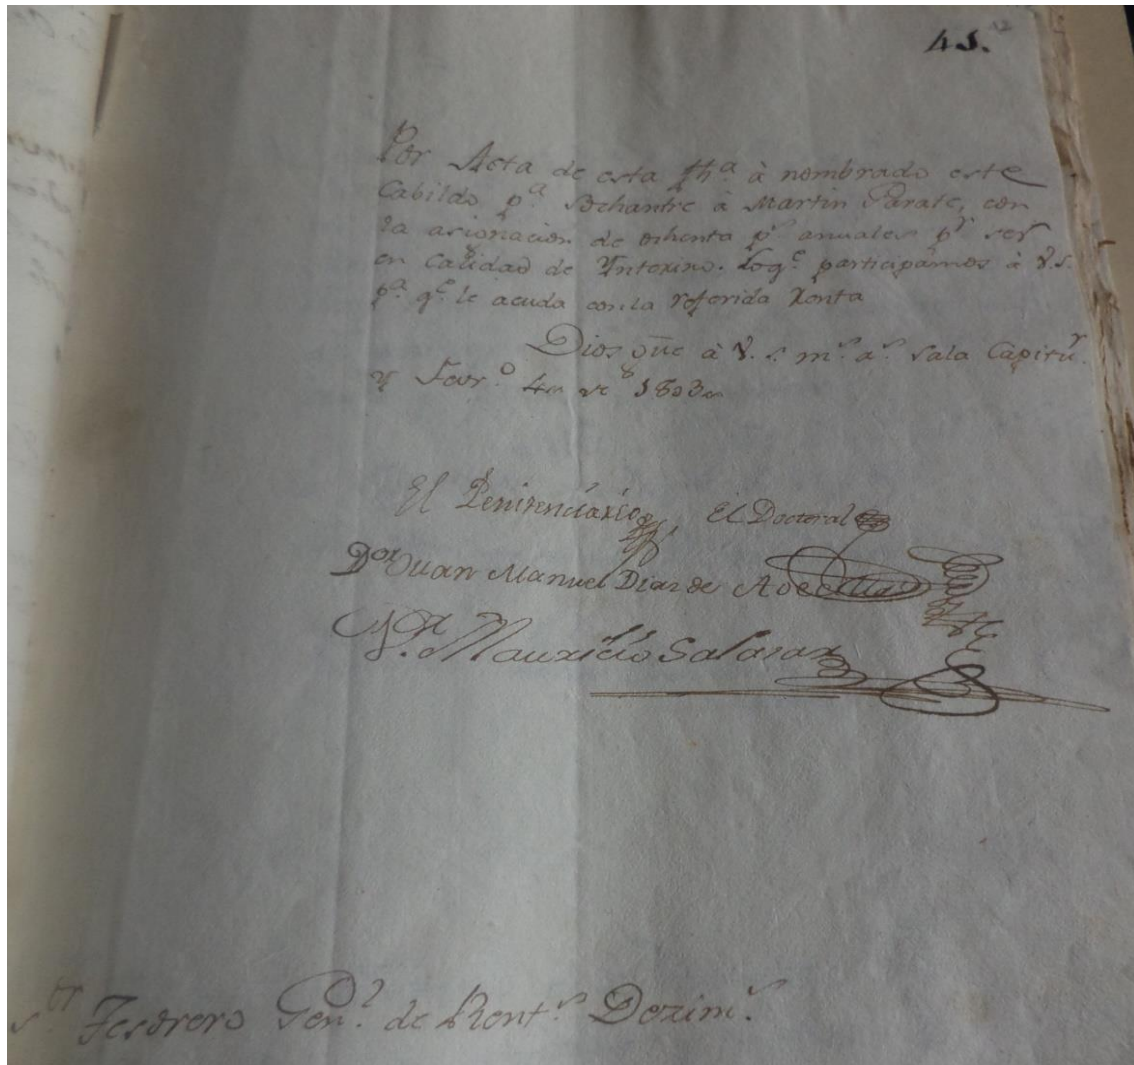 45.
Por Acta de esta fh.a à nombrado este
Cabildo p.a Sochantre à Martin Garate, con
la asignacion de ochenta p.s anuales p.r ser
en calidad de Ynterino. Loq.e participamos à V.S.
p.a q.e le acuda con la referida Renta
Dios gũe à V.S. m.s a.s Sala Capitu.r
y Feur.o 4 de 1803
El Penitenciario El Doctoral
D.or Juan Manuel Dias de
D.r Mauricio Salazar
S.or Tesorero Gen.l de Rent.s Dezim.s